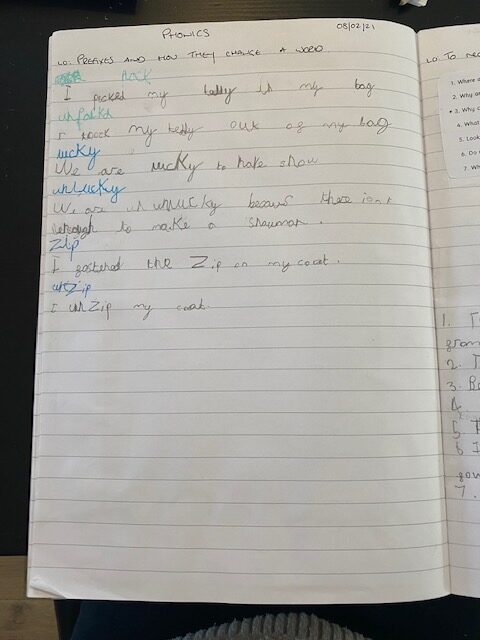 PHONICS 08/02/21
LO. PREFIXES AND HOW THEY CHANGE A WORD
Pack
I picked my teddy in my bag
unpackt
I my teddy out of my bag
lucky
We are lucky to hake snow
unlucky
We are un unlucky because there isnt
to make a
Zip
I fastered the Zip on my coat.
unZip
I unZip my coat.
LO TO
1. Where
2. Why
3. Why
4. What
5. Look
6. Do
7.
1. T
gram
2. T
3. Re
4
5 T
6 I
gou
7.